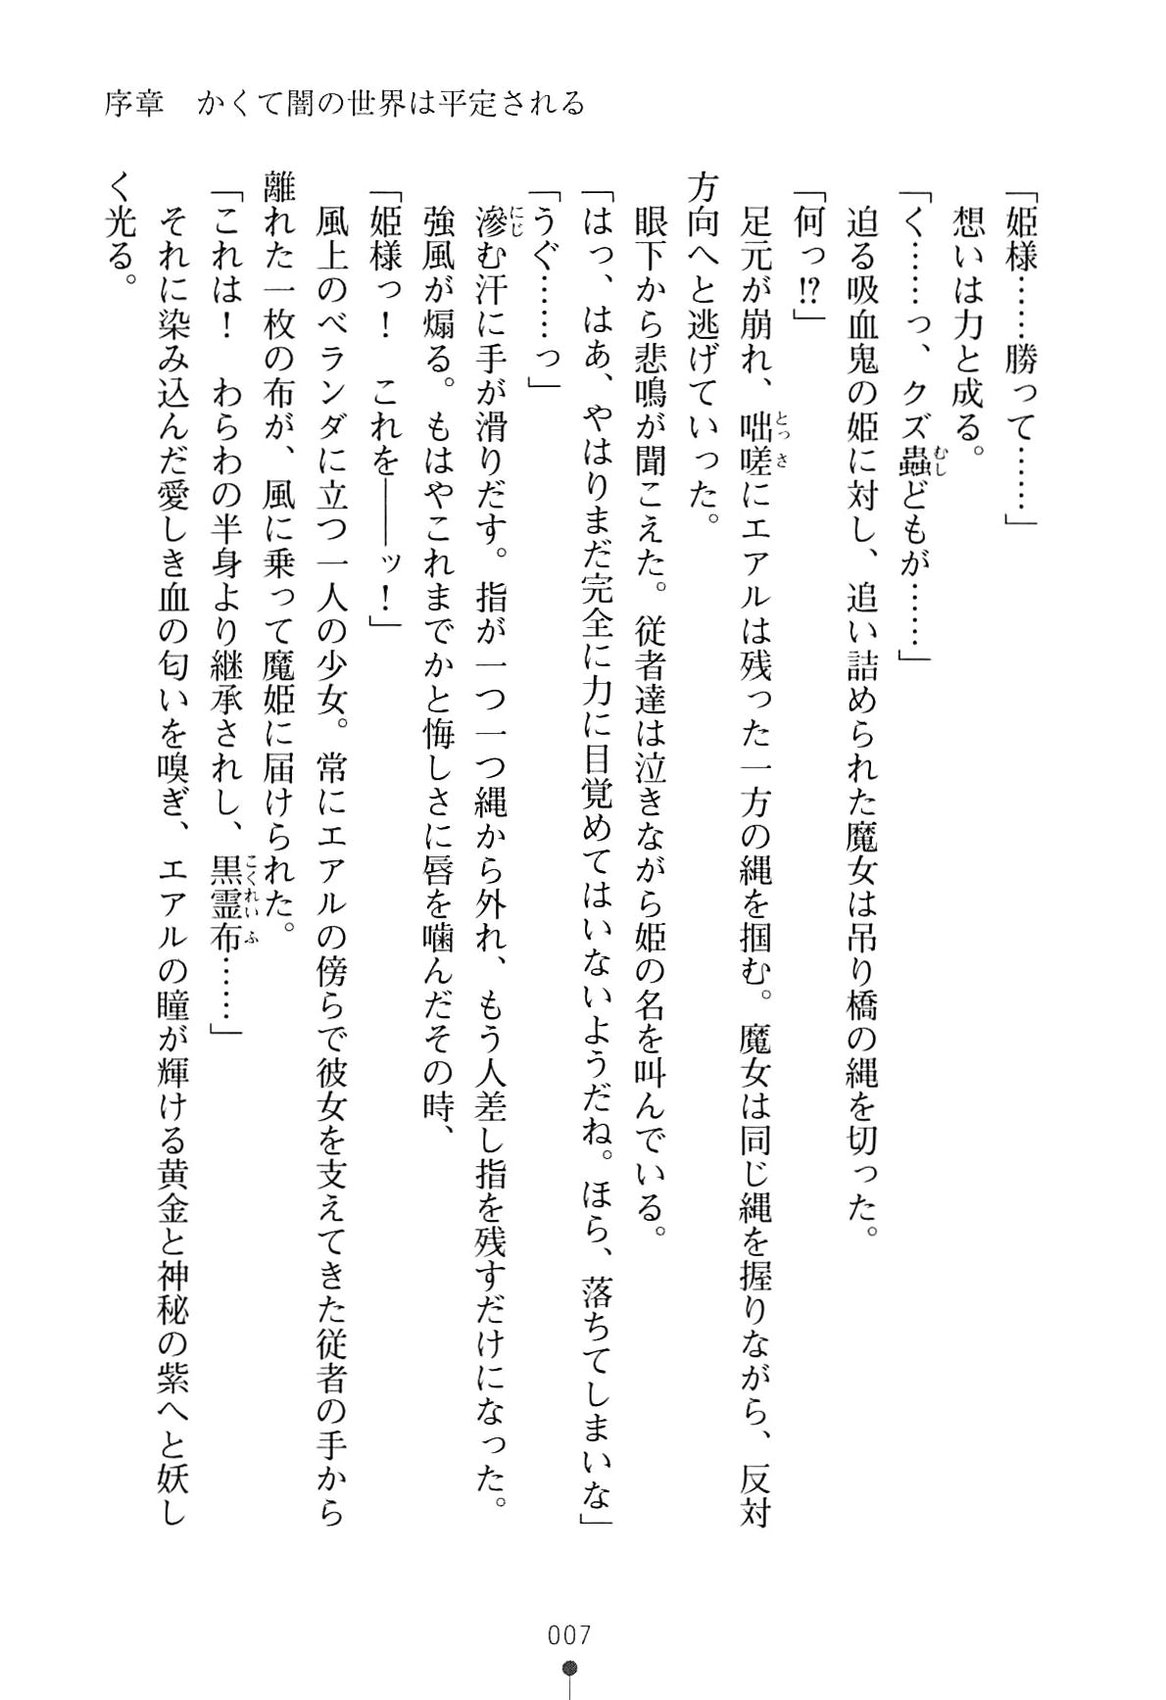 序章　かくて闇の世界は平定される
「姫様……勝って……」
　想いは力と成る。
「く……っ、クズ蟲どもが……」
　迫る吸血鬼の姫に対し、追い詰められた魔女は吊り橋の縄を切った。
「何っ!?」
　足元が崩れ、咄嗟にエアルは残った一方の縄を掴む。魔女は同じ縄を握りながら、反対
方向へと逃げていった。
　眼下から悲鳴が聞こえた。従者達は泣きながら姫の名を叫んでいる。
「はっ、はぁ、やはりまだ完全に力に目覚めてはいないようだね。ほら、落ちてしまいな」
「うぐ……っ」
　滲む汗に手が滑りだす。指が一つ一つ縄から外れ、もう人差し指を残すだけになった。
　強風が煽る。もはやこれまでかと悔しさに唇を噛んだその時、
「姫様っ！　これを――ッ！」
　風上のベランダに立つ一人の少女。常にエアルの傍らで彼女を支えてきた従者の手から
離れた一枚の布が、風に乗って魔姫に届けられた。
「これは！　わらわの半身より継承されし、黒霊布……」
　それに染み込んだ愛しき血の匂いを嗅ぎ、エアルの瞳が輝ける黄金と神秘の紫へと妖し
く光る。
007